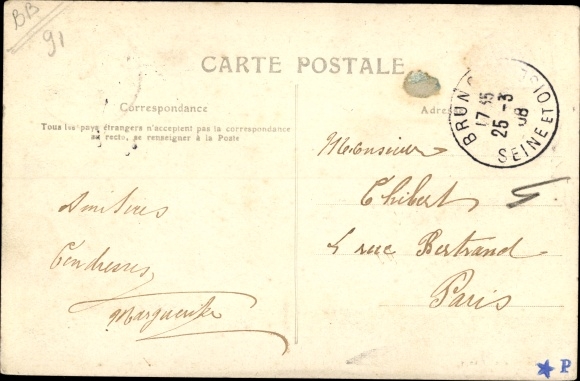 BB
91
CARTE POSTALE
Correspondance
Tous les pays étrangers n'acceptent pas la correspondance
au recto, se renseigner à la Poste
Adres
BRUN
17 35
25 -3
08
SEINE ET OISE
Monsieur
Thibert
4 rue Bertrand
Paris
Amitiés
Tendresses
Marguerite
P